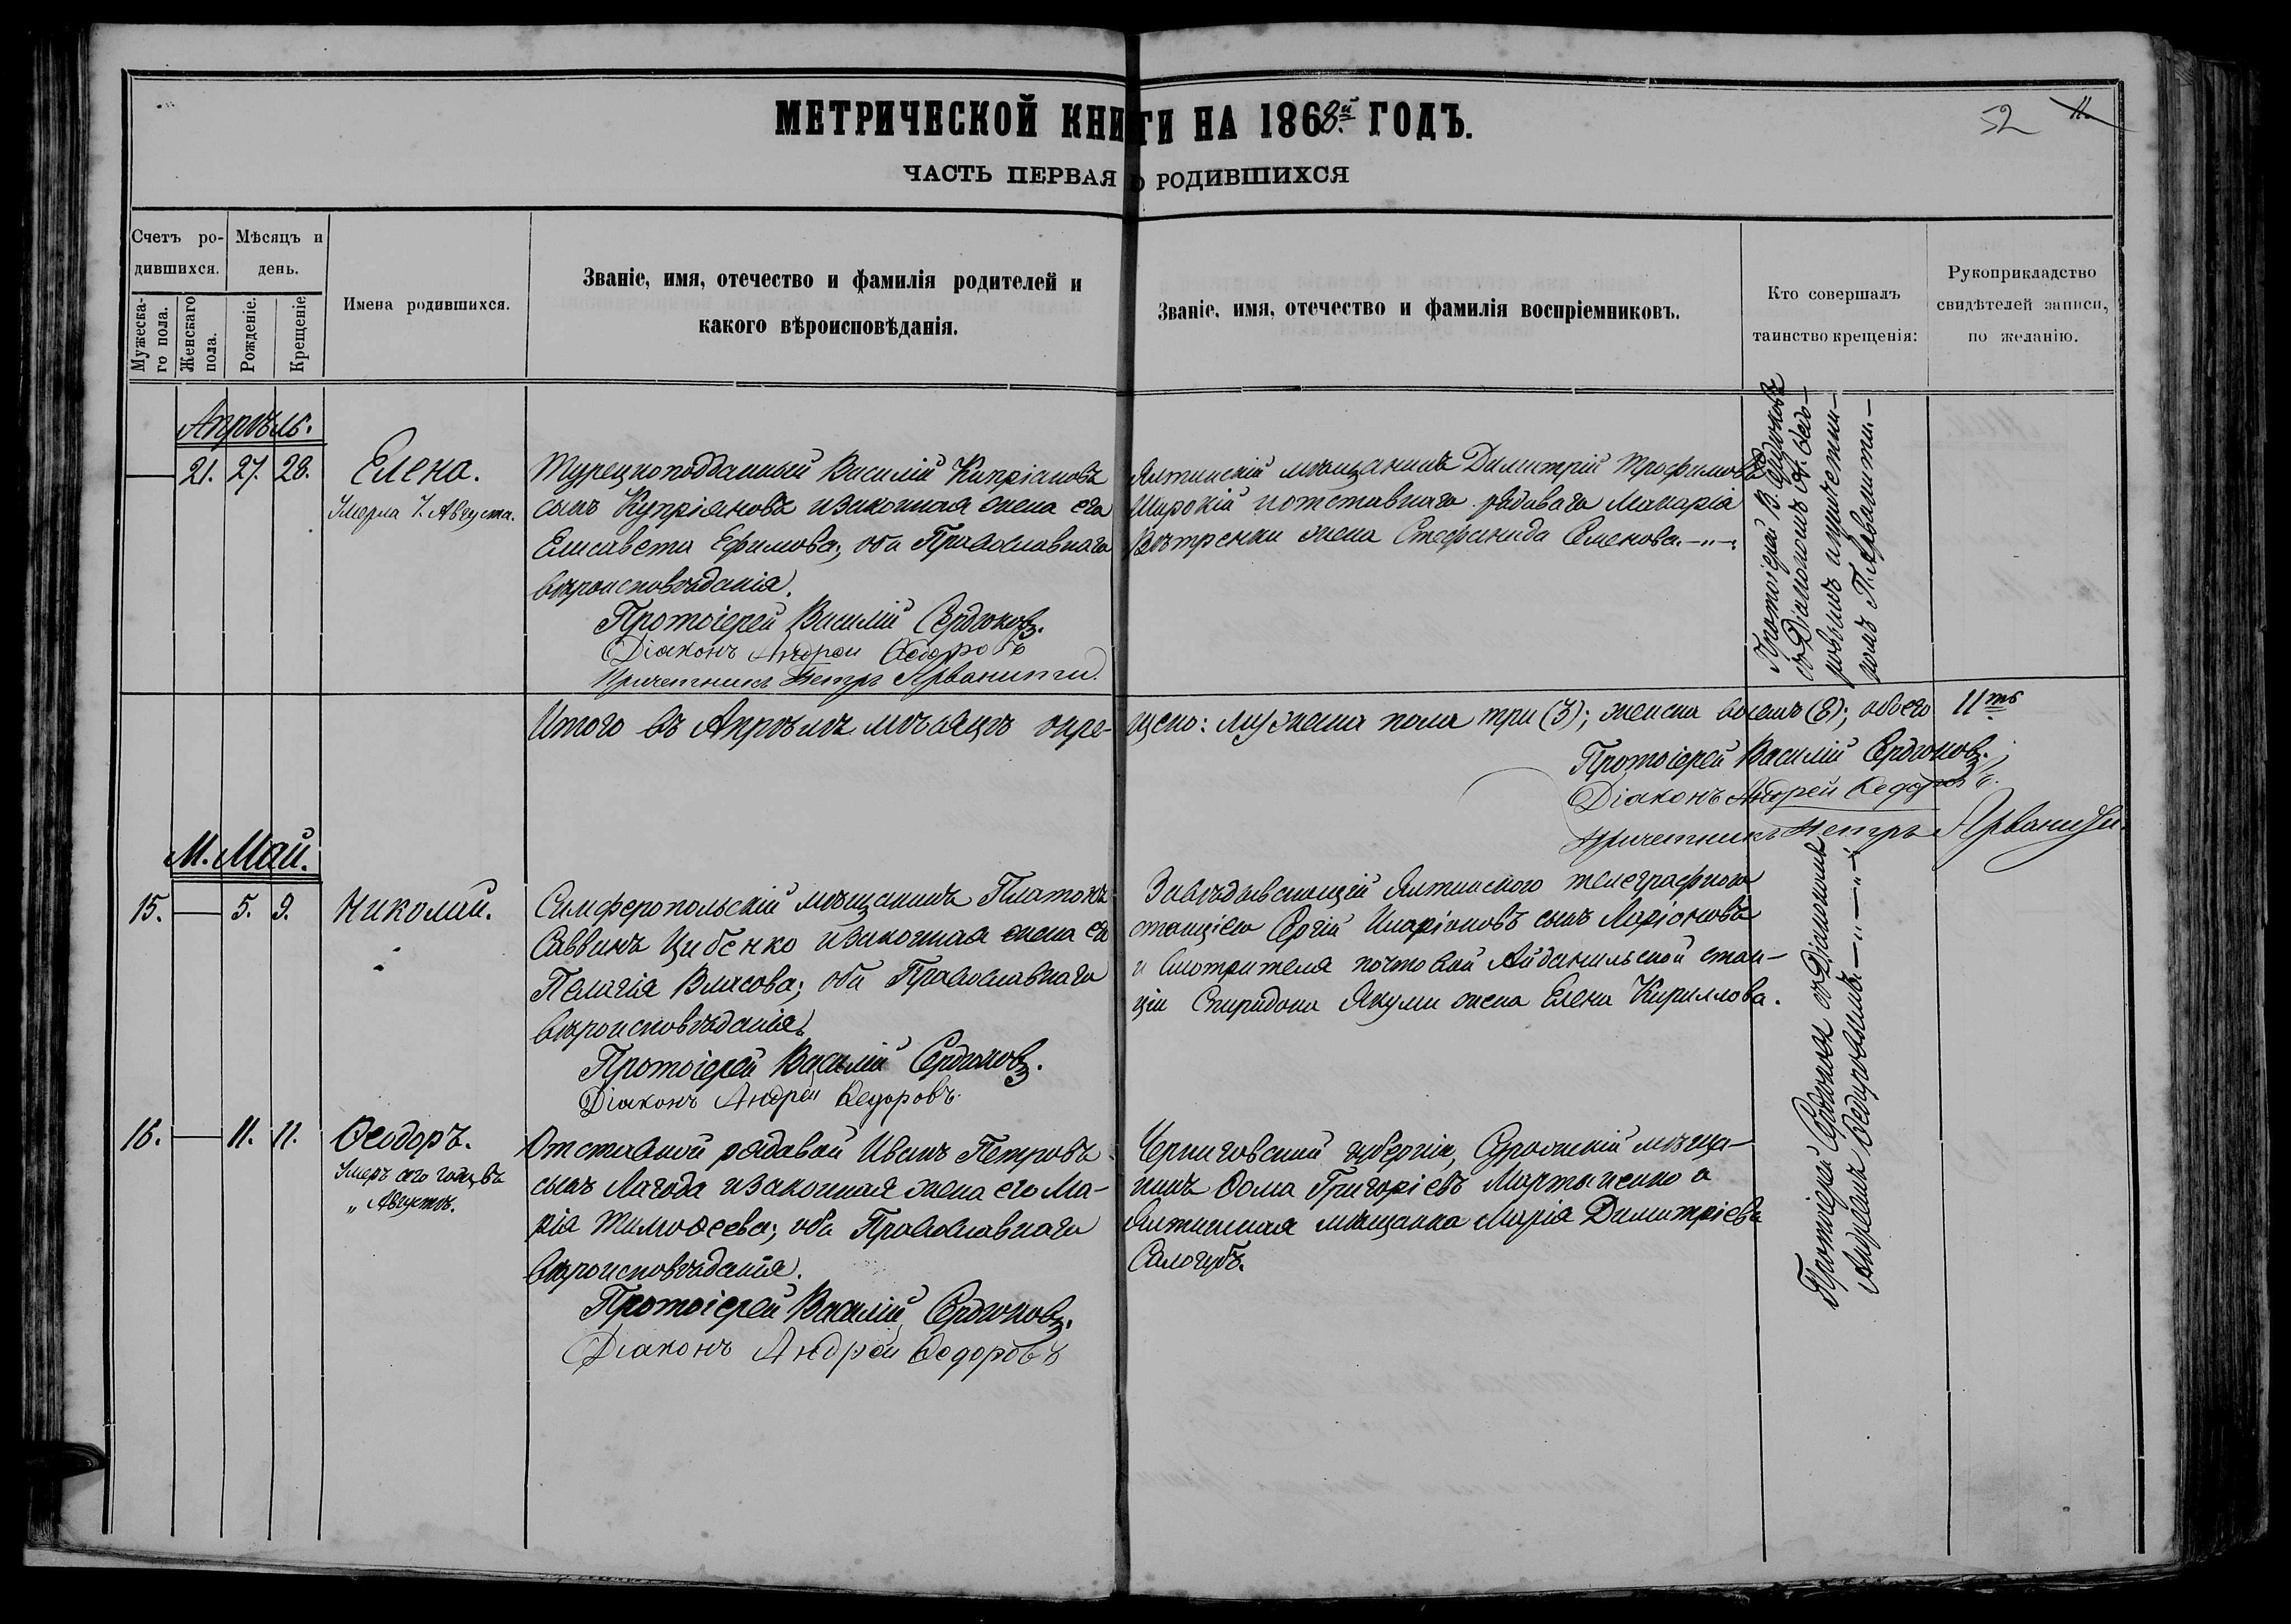 МЕТРИЧЕСКОЙ КНИГИ НА 1868й ГОДЪ.
52 11.
ЧАСТЬ ПЕРВАЯ О РОДИВШИХСЯ
Счетъ ро-
дившихся.
Мужеска-
го пола.
Женскаго
пола.
Мѣсяцъ и
день.
Рожденіе.
Крещеніе
Имена родившихся.
Званіе, имя, отечество и фамилія родителей и
какого вѣроисповѣданія.
Званіе, имя, отечество и фамилія воспріемниковъ.
Кто совершалъ
таинство крещенія:
Рукоприкладство
свидѣтелей записи,
по желанію.
Апрѣль.
21. 27. 28.
Елена.
Умерла 7. Августа.
Турецкоподданный Василій Кипріановъ
сынъ Купріяновъ и законная жена его
Елисавета Ефимова; оба Православнаго
вѣроисповѣданія.
Протоіерей Василій Сердюковъ.
Діаконъ Андрей Ѳедоровъ
Причетникъ Петръ Арванити.
Ялтинскій мѣщанинъ Димитрій Трофимовъ
Широкій и отставнаго рядоваго Макарія
Вѣтренки жена Стефанида Семенова.—"—
Протоіерей В. Сердюковъ
съ Діакономъ А. Ѳедо-
ровымъ и причетни-
комъ П. Арванити.—
Итого въ Апрѣлѣ мѣсяцѣ окре-
щено: мужеска пола три (3); женска восемь (8); обоего 11ть
Протоіерей Василій Сердюковъ.
Діаконъ Андрей Ѳедоровъ.
Причетникъ Петръ Арванити.
М. Май.
15. — 5. 9.
Николай.
Симферопольскій мѣщанинъ Платонъ
Саввинъ Цибенко и законная жена его
Пелагія Власова; оба Православнаго
вѣроисповѣданія.
Протоіерей Василій Сердюковъ.
Діаконъ Андрей Ѳедоровъ.
Завѣдывающій Ялтинскою телеграфною
станціею Сергій Иларіоновъ сынъ Ларіоновъ
и Смотрителя почтовой Айданильской стан-
ціи Спиридона Якуми жена Елена Кириллова.
16. — 11. 11.
Ѳеодоръ.
Умеръ сего года въ
" Августѣ.
Отставной рядовой Иванъ Петровъ
сынъ Лагода и законная жена его Ма-
рія Тимоѳеева; оба Православнаго
вѣроисповѣданія.
Протоіерей Василій Сердюковъ.
Діаконъ Андрей Ѳедоровъ
Черниговской губерніи, Суражскій мѣща-
нинъ Ѳома Григоріевъ Мартыненко и
Ялтинская мѣщанка Марія Димитріева
Сологубъ.
Протоіерей Сердюковъ съ Діакономъ
Андреемъ Ѳедоровымъ.—"—"—